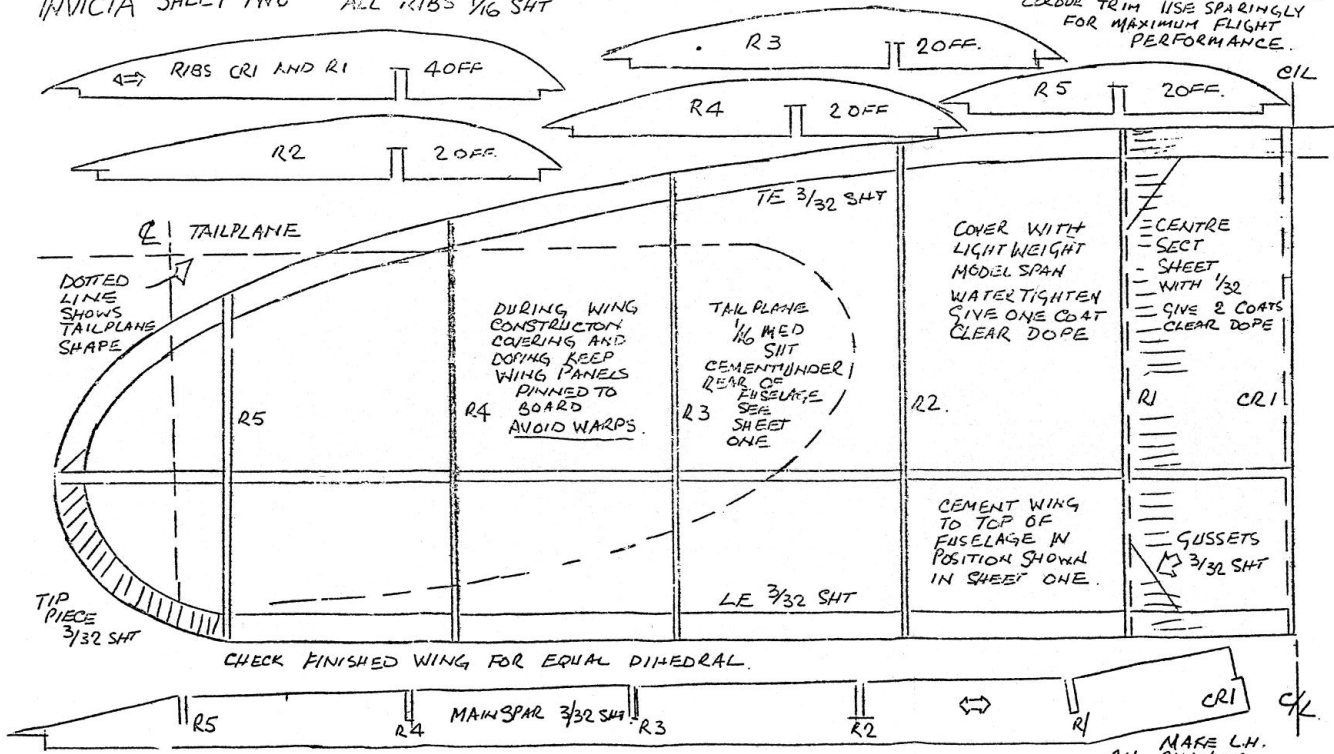 INVICIA SHEET TWO ALL RIBS 1/16 SHT
COLOUR TRIM USE SPARINGLY
FOR MAXIMUM FLIGHT
PERFORMANCE.
RIBS CR1 AND R1 4OFF
R3 2OFF.
R4 2OFF
R5 2OFF.
C/L
R2 2OFF.
TE 3/32 SHT
CL TAILPLANE
DOTTED
LINE
SHOWS
TAILPLANE
SHAPE
DURING WING
CONSTRUCTON
COVERING AND
DOPING KEEP
WING PANELS
PINNED TO
BOARD
AVOID WARPS.
TAIL PLANE
1/16 MED
SHT
CEMENT UNDER
REAR OF
FUSELAGE
SEE
SHEET
ONE
COVER WITH
LIGHTWEIGHT
MODEL SPAN
WATER TIGHTEN
GIVE ONE COAT
CLEAR DOPE
CENTRE
SECT
SHEET
WITH 1/32
GIVE 2 COATS
CLEAR DOPE
R5
R4
R3
R2.
R1
CR1
CEMENT WING
TO TOP OF
FUSELAGE IN
POSITION SHOWN
IN SHEET ONE.
GUSSETS
3/32 SHT
TIP
PIECE
3/32 SHT
LE 3/32 SHT
CHECK FINISHED WING FOR EQUAL DIHEDRAL.
R5
R4
MAINSPAR 3/32 SHT.
R3
R2
R1
CR1
C/L.
MAKE L.H.